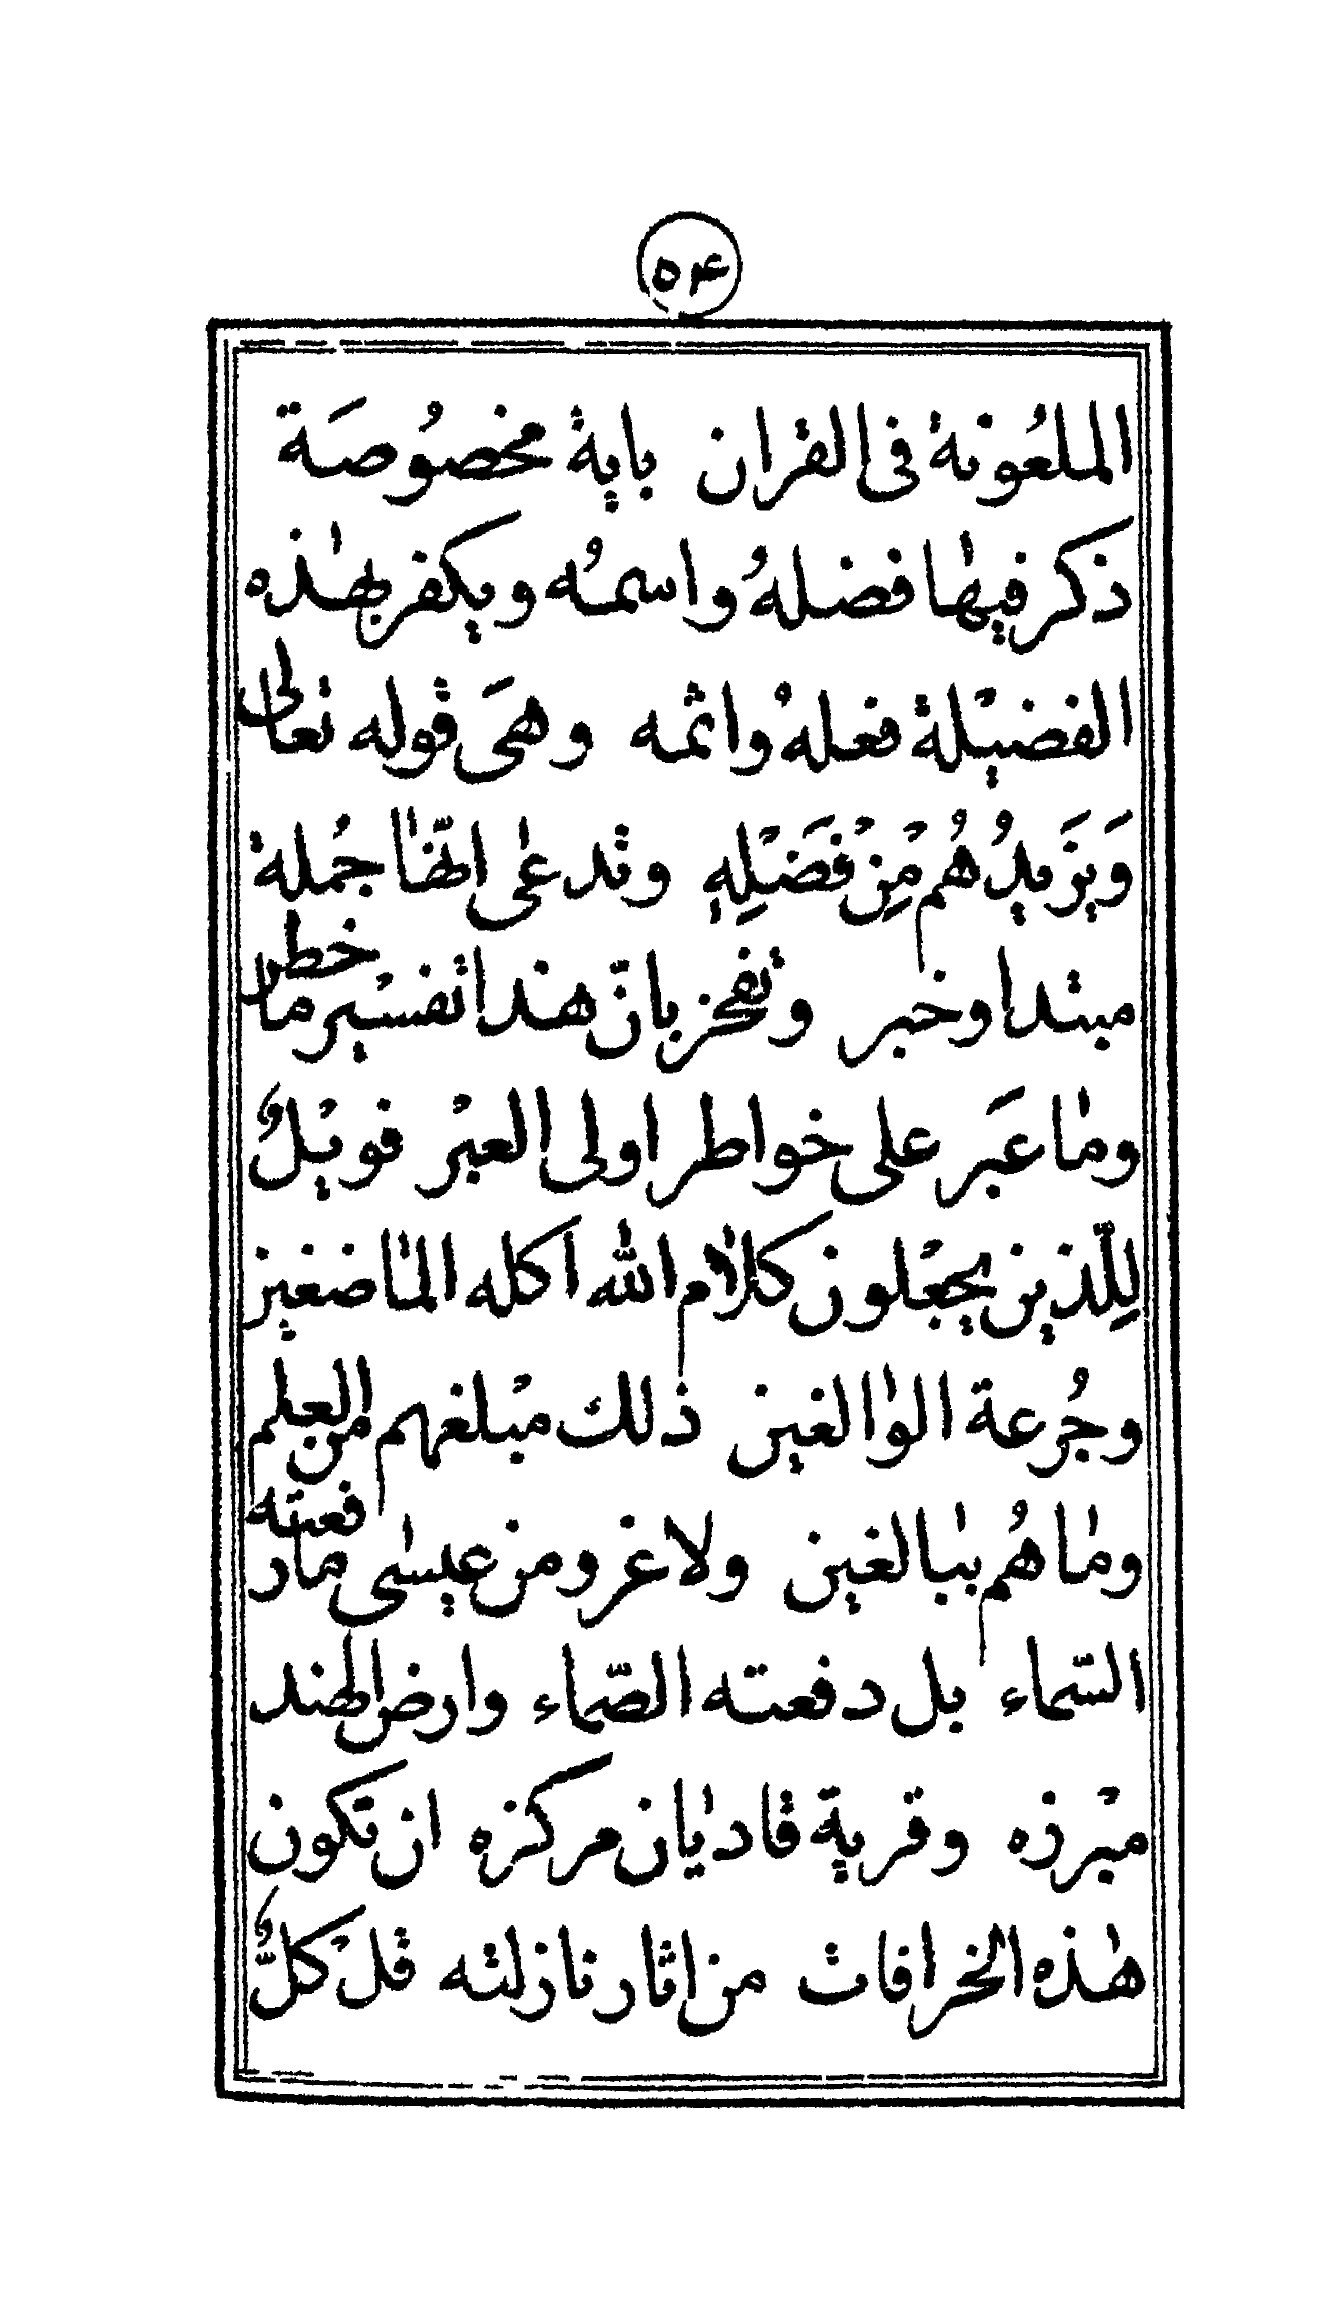 ۵۴
الملعونة فى القران باية مخصوصة
ذكر فيها فضلهُ واسمه ويكفر بهذه
الفضيلة فعلهُ واثمه وهى قوله تعالى
وَيَزِيدُهُم مِنْ فَضْلِهٖ وتدعى انّها جُملة
مبتدا وخبر وتفخر بانّ هذا تفسير ما خطر
وما عبَر على خواطر اولى العبر فويلٌ
لِلّذين يجعلون كلام الله اكله الماضغين
وجُرعة الوالغين ذلك مبلغهم من العلم
وما هُم ببالغين ولا غرو من عيسى ما دفعته
السّماء بل دفعته الصّماء وارض الهند
مبرزه وقرية قاديان مركزه ان تكون
هذه الخرافات من اثار نازلته قل كلٌّ